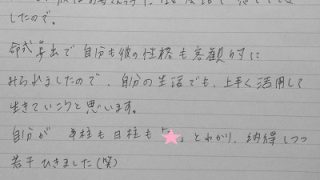 したので。
命式算出で自分も彼の性格も客観的に
みられましたので、自分の生活でも、上手く活用して
生きていこうと思います。
自分が 年柱も日柱も「 」とわかり、納得しつつ
若干ひきました(笑)